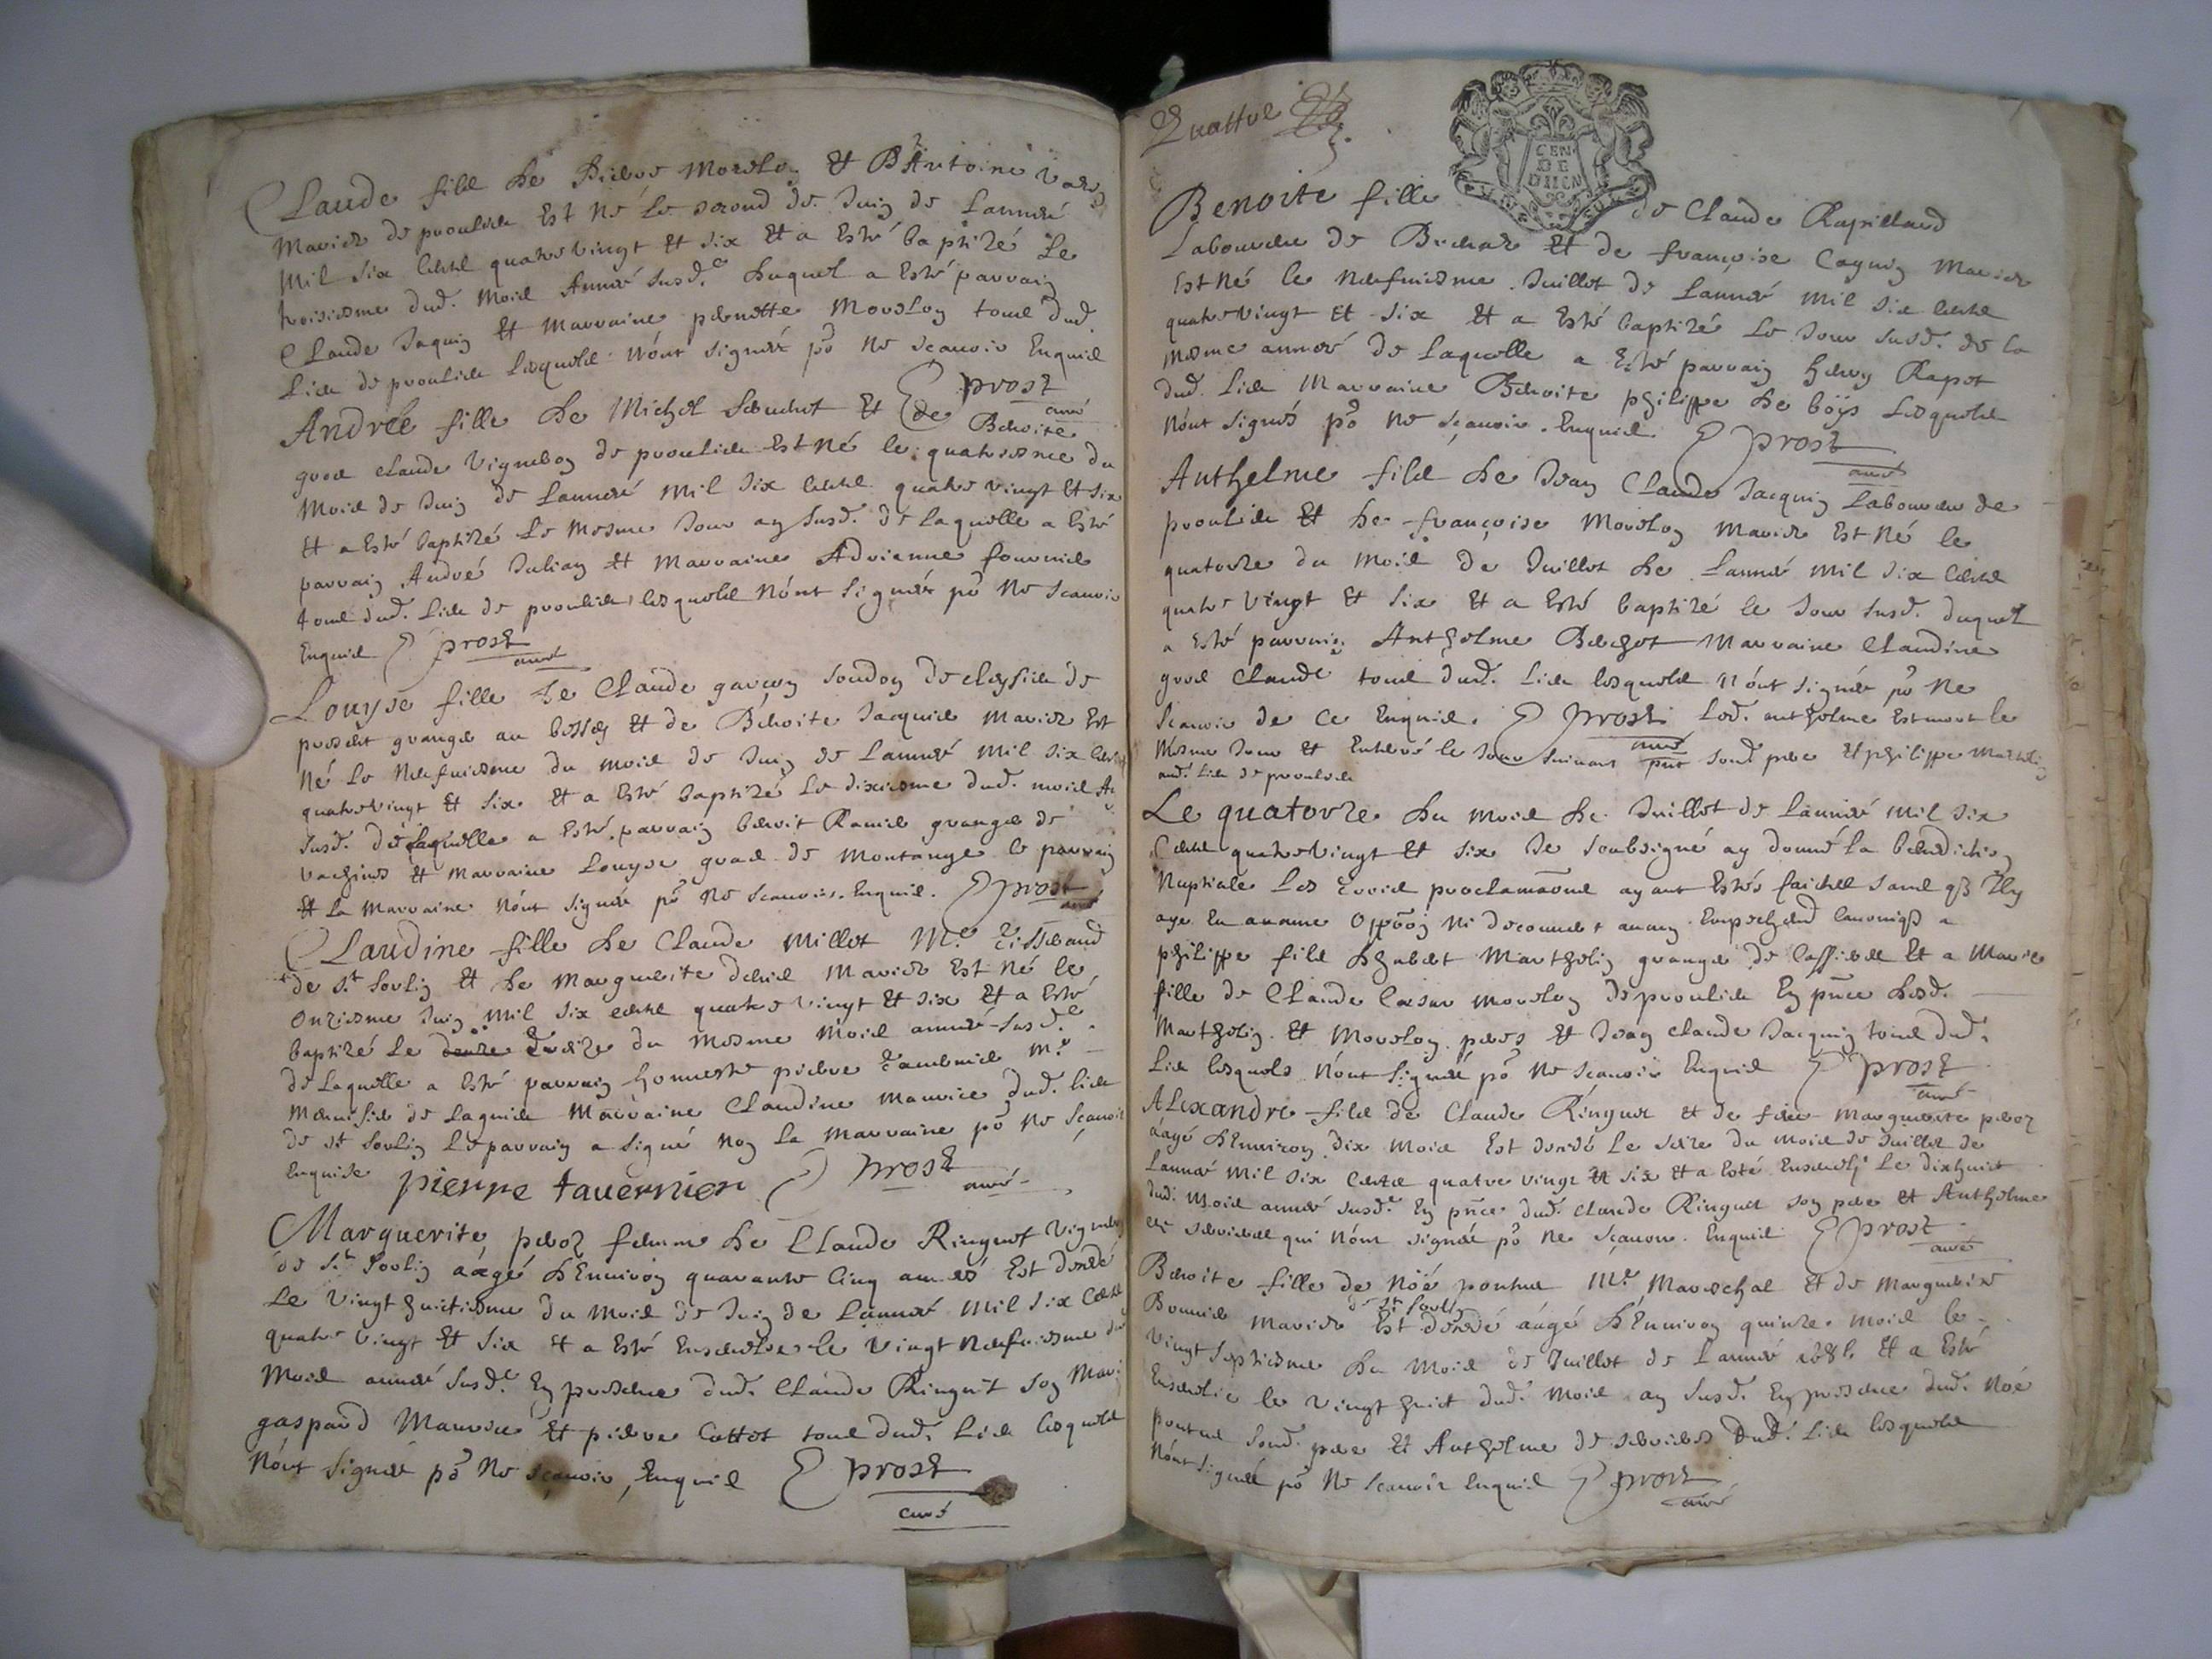 Claude filz de Pierre Morelon et Antoine
Mariez de proulieu Est Né Le second de Juin de Lanneé
Mil six centz quatre vingt et six Et a Esté baptizé Le
troisiesme dud. Mois Anneé susd.e duquel a esté parrain
Claude Jaquin Et Marraine pernette Morelon tous dud.
Lieu de proulieu Lesquels n'ont signéz po.r Ne scavoir Enquis
prost curé
Andreé fille de Michel Et de Benoite
gros claude Vigneron de proulieu Est Né le quatriesme du
Mois de Juin de Lanneé Mil six centz quatre vingt Et six
Et a Esté baptizé Le Mesme Jour an susd. de laquelle a Esté
parrain André Julian Et Marraine Adrienne fournier
tous dud. Lieu de proulieu, lesquels Nont signéz po.r Ne scavoir
Enquis prost curé
Louyse fille de Claude garçon de
present granger au Et de Benoite Jacquier Mariez Est
Né Le Neufuiesme du mois de Juin de Lanneé Mil six centz
quatre vingt Et six Et a Esté baptizé Le dixiesme dud. mois An
susd. de Laquelle a Esté parrain benoit granger de
Et marraine Louyse gros de Montange le parrain
Et la Marraine Nont signéz po.r Ne scavoir Enquis. prost curé
Claudine fille de Claude Millot M.e Tisserand
de S.t Sorlin Et de Marguerite Mariez Est Né le
onziesme Juin Mil six centz quatre vingt Et six Et a Esté
baptizé Le du Mesme Mois anneé susd.e
de Laquelle a Esté parrain honneste pierre tavernier M.e
Menuisier de Lagnieu Marraine Claudine Maurice dud. lieu
de S.t Sorlin Le parrain a signé Non La Marraine po.r Ne Scavoir
Enquise pierre tavernier prost curé
Marguerite femme de Claude Ringuet Vigneron
de S.t Sorlin aàgé d'Environ quarante Cinq anneés Est decedé
Le Vingt huictiesme du Mois de Juin de Lanneé Mil six Centz
quatre Vingt Et six Et a Esté Ensevelie le Vingt Neufuiesme dud
Mois anneé susd.e En presence dud. Claude Ringuet son Mari
gaspard Maurice Et pierre Cottet tous dud. Lieu lesquels
Nont signéz po.r Ne scavoir, Enquis prost
curé
Quattre
GEN
DE
Benoite fille de Claude Rapillard
Laboureur de Et de françoise Cagnin Mariez
Est Né le Neufuiesme Juillet de Lanneé Mil six centz
quatre Vingt Et six Et a Esté baptizé Le Jour susd. de la
Mesme anneé de Laquelle a Esté parrain Rapet
dud. Lieu Marraine Benoite philippe de Lesquels
Nont signéz po.r Ne scavoir. Enquis prost curé
Anthelme filz de Jean Claude Jacquin Laboureur de
proulieu Et de françoise Morelon Mariez Est Né le
quatorze du Mois de Juillet de Lanneé Mil six Centz
quatre Vingt Et six Et a Esté baptizé le Jour susd. duquel
a Esté parrain Anthelme Marraine Claudine
gros Claude tous dud. Lieu lesquels n'ont signéz po.r Ne
Scavoir de ce Enquis. prost curé Led. anthelme Est mort le
Mesme Jour Et Enterré le Jour suivant pnt soud. pere Et philippe Marthelin
aud. Lieu de proulieu
Le quatorze du Mois de Juillet de Lanneé Mil six
Centz quatre Vingt Et six Je soubsigné ay donné la benediction
Nuptiale Les trois proclamaõns ayant Estés faictes sans q.l ny
aye Eu aucune Oppõon Ni decouvert aucun Empechement canoniq. a
philippe filz Marthelin granger de Et a Marie
fille de Claude Cæsar Morelon de proulieu En pnce desd.
Marthelin Et Morelon peres Et Jean claude Jacquin tous dud.
Lieu lesquels Nont signéz po.r Ne scavoir Enquis prost curé
Alexandre filz de Claude Ringuet et de feue Marguerite
aagé d'Environ dix Mois Est decedé Le seize du Mois de Juillet de
Lanneé Mil six Centz quatre vingt Et six Et a Esté Ensevely Le dixhuict
dud. Mois anneé susd.e En pnce dud. claude Ringuet son pere Et Anthelme
qui Nont signéz po.r Ne Scavoir. Enquis prost curé
Benoite fille de Noé M.e Mareschal Et de Marguerite
Mariez de S.t Sorlin Est decedé aàgé d'Environ quinze Mois le
Vingt septiesme du Mois de Juillet de Lanneé 1686 Et a Esté
Ensevelie le Vingt huict dud. Mois an susd. En presence dud. Noé
soud. pere Et Anthelme dud. Lieu lesquels
Nont signéz po.r Ne Scavoir Enquis prost
curé